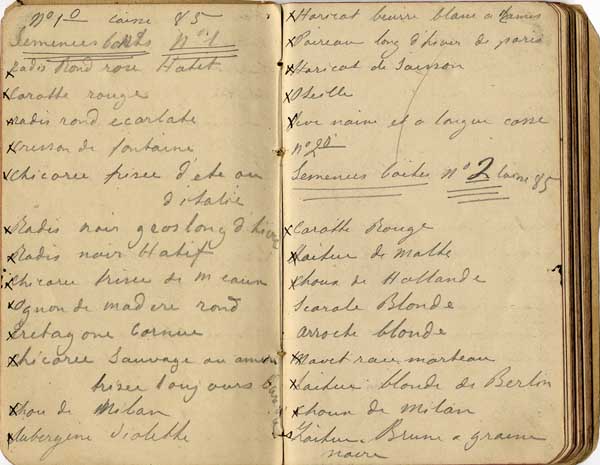 N° 1° Caisse 85
Semences boites N° 1
Radis Rond rose Hatif
Carotte rouge
Radis rond ecarlate
Cresson de fontaine
Chicorée frisée d'été ou
d'italie
Radis noir gros long d'hiver
Radis noir Hatif
Chicorée frisée de Meaux
Ognon de madère rond
Tretagone Cornue
Chicorée Sauvage ou
frisée toujours
Chou de Milan
Aubergine violette
Haricot beurre blanc a rames
Poireau long d'hiver de paris
Haricot de Soisson
Oseille
Fève naine et a longue cosse
N° 2°
Semences boites N° 2 Caisse 85
Carotte Rouge
Laitue de Malte
Choux de Hollande
Scarole Blonde
Arroche blonde
Navet rave marteau
Laitue blonde de Berlin
Choux de Milan
Laitue Brune a graine
noire